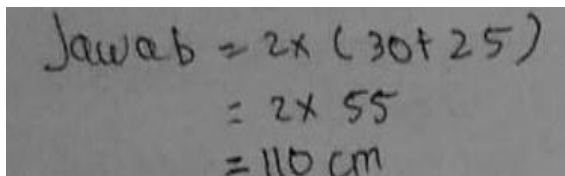 Jawab = 2x (30+25)
= 2x 55
= 110 cm